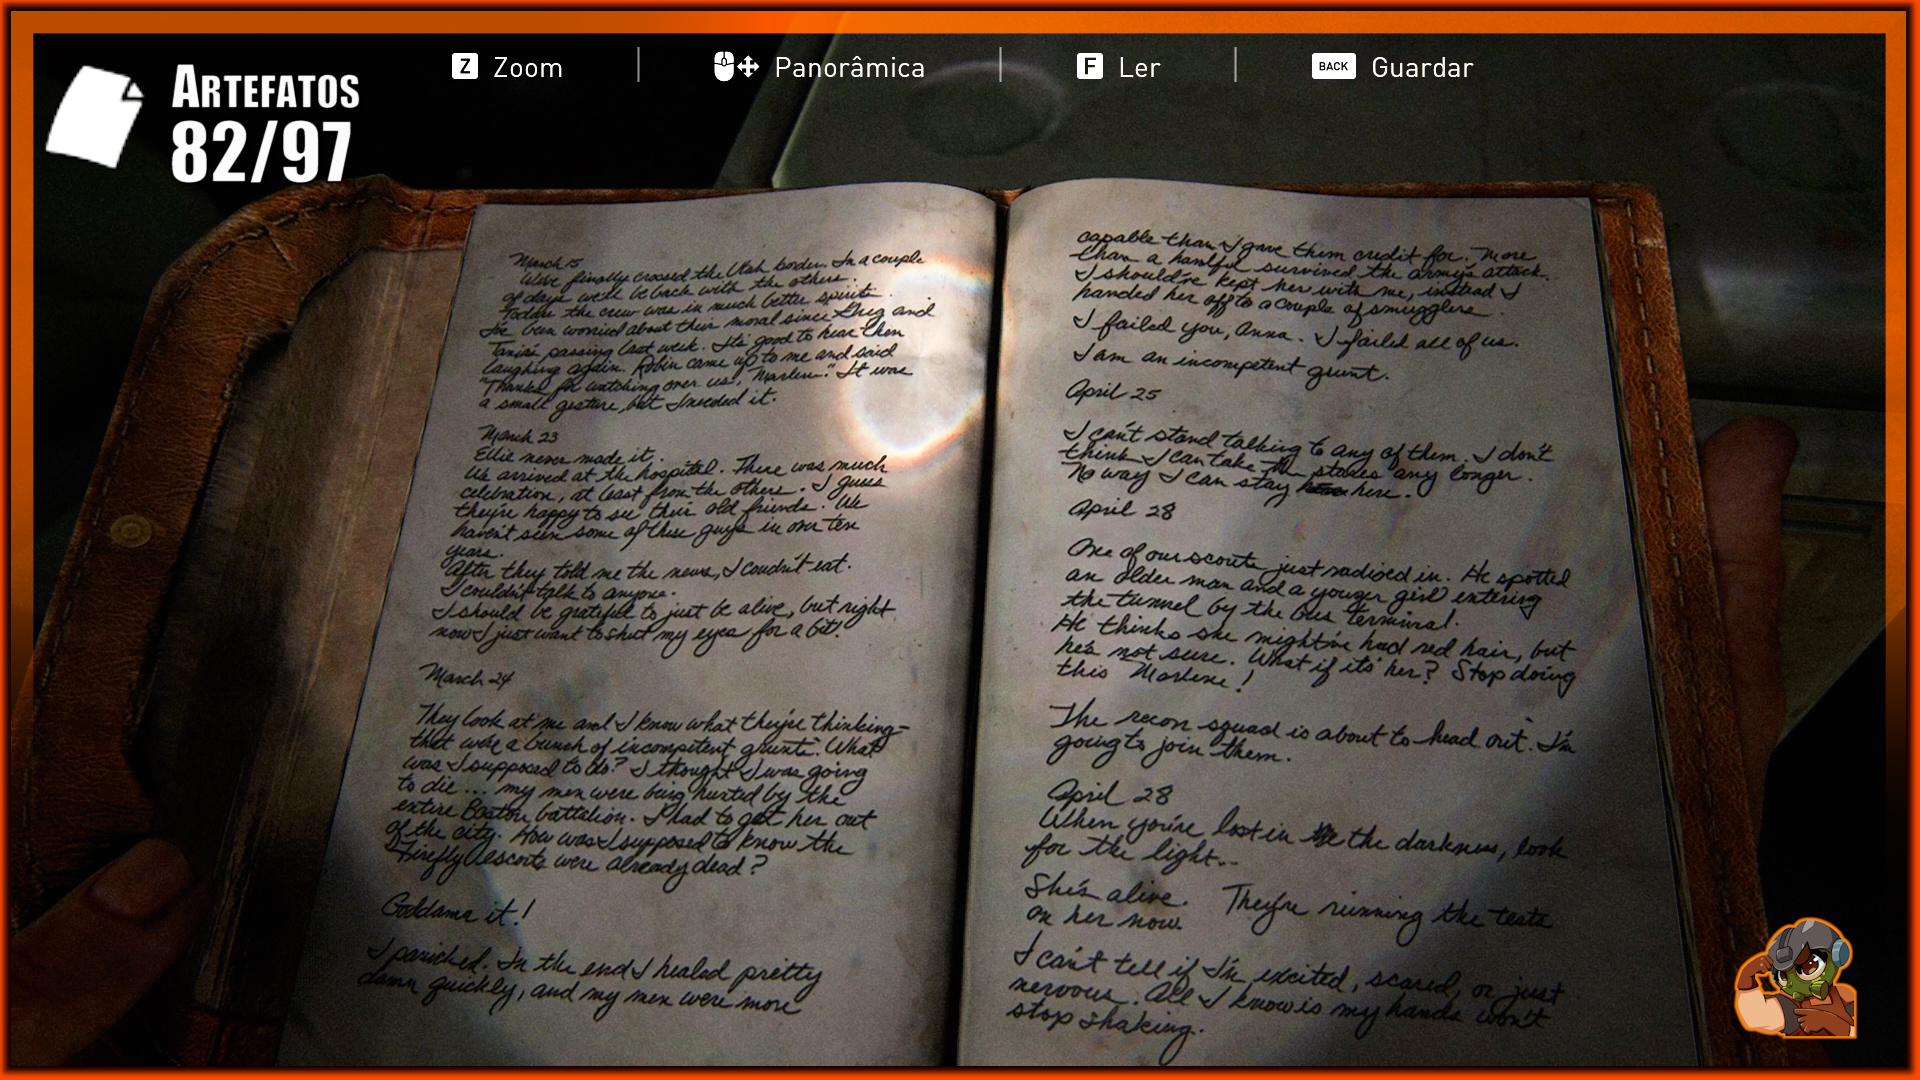 ARTEFATOS
82/97
Z Zoom
Panorâmica
F Ler
BACK Guardar
March 15
We've finally crossed the Utah border. In a couple
of days we'll be back with the others.
Today the crew was in much better spirits.
I've been worried about their moral since Greg and
Tania's passing last week. It's good to hear them
laughing again. Robin came up to me and said
"Thanks for watching over us, Marlene." It was
a small gesture, but I needed it.
March 23
Ellie never made it.
We arrived at the hospital. There was much
celebration, at least from the others. I guess
they're happy to see their old friends. We
haven't seen some of these guys in over ten
years.
After they told me the news, I couldn't eat.
I couldn't talk to anyone.
I should be grateful to just be alive, but right
now I just want to shut my eyes for a bit.
March 24
They look at me and I know what they're thinking-
that we're a bunch of incompitent grunts. What
was I supposed to do? I thought I was going
to die... my men were being hunted by the
entire Boston battalion. I had to get her out
of the city. How was I supposed to know the
Firefly escorts were already dead?
Goddamn it!
I panicked. In the end I healed pretty
damn quickly, and my men were more
capable than I gave them credit for. More
than a handful survived the army's attack.
I should've kept her with me, instead I
handed her off to a couple of smugglers.
I failed you, Anna. I failed all of us.
I am an incompetent grunt.
April 25
I can't stand talking to any of them. I don't
think I can take the stares any longer.
No way I can stay here.
April 28
One of our scouts just radioed in. He spotted
an older man and a younger girl entering
the tunnel by the bus terminal.
He thinks she might've had red hair, but
he's not sure. What if it's her? Stop doing
this Marlene!
The recon squad is about to head out. I'm
going to join them.
April 28
When you're lost in the darkness, look
for the light..
She's alive. They're running the tests
on her now.
I can't tell if I'm excited, scared, or just
nervous. All I know is my hands won't
stop shaking.